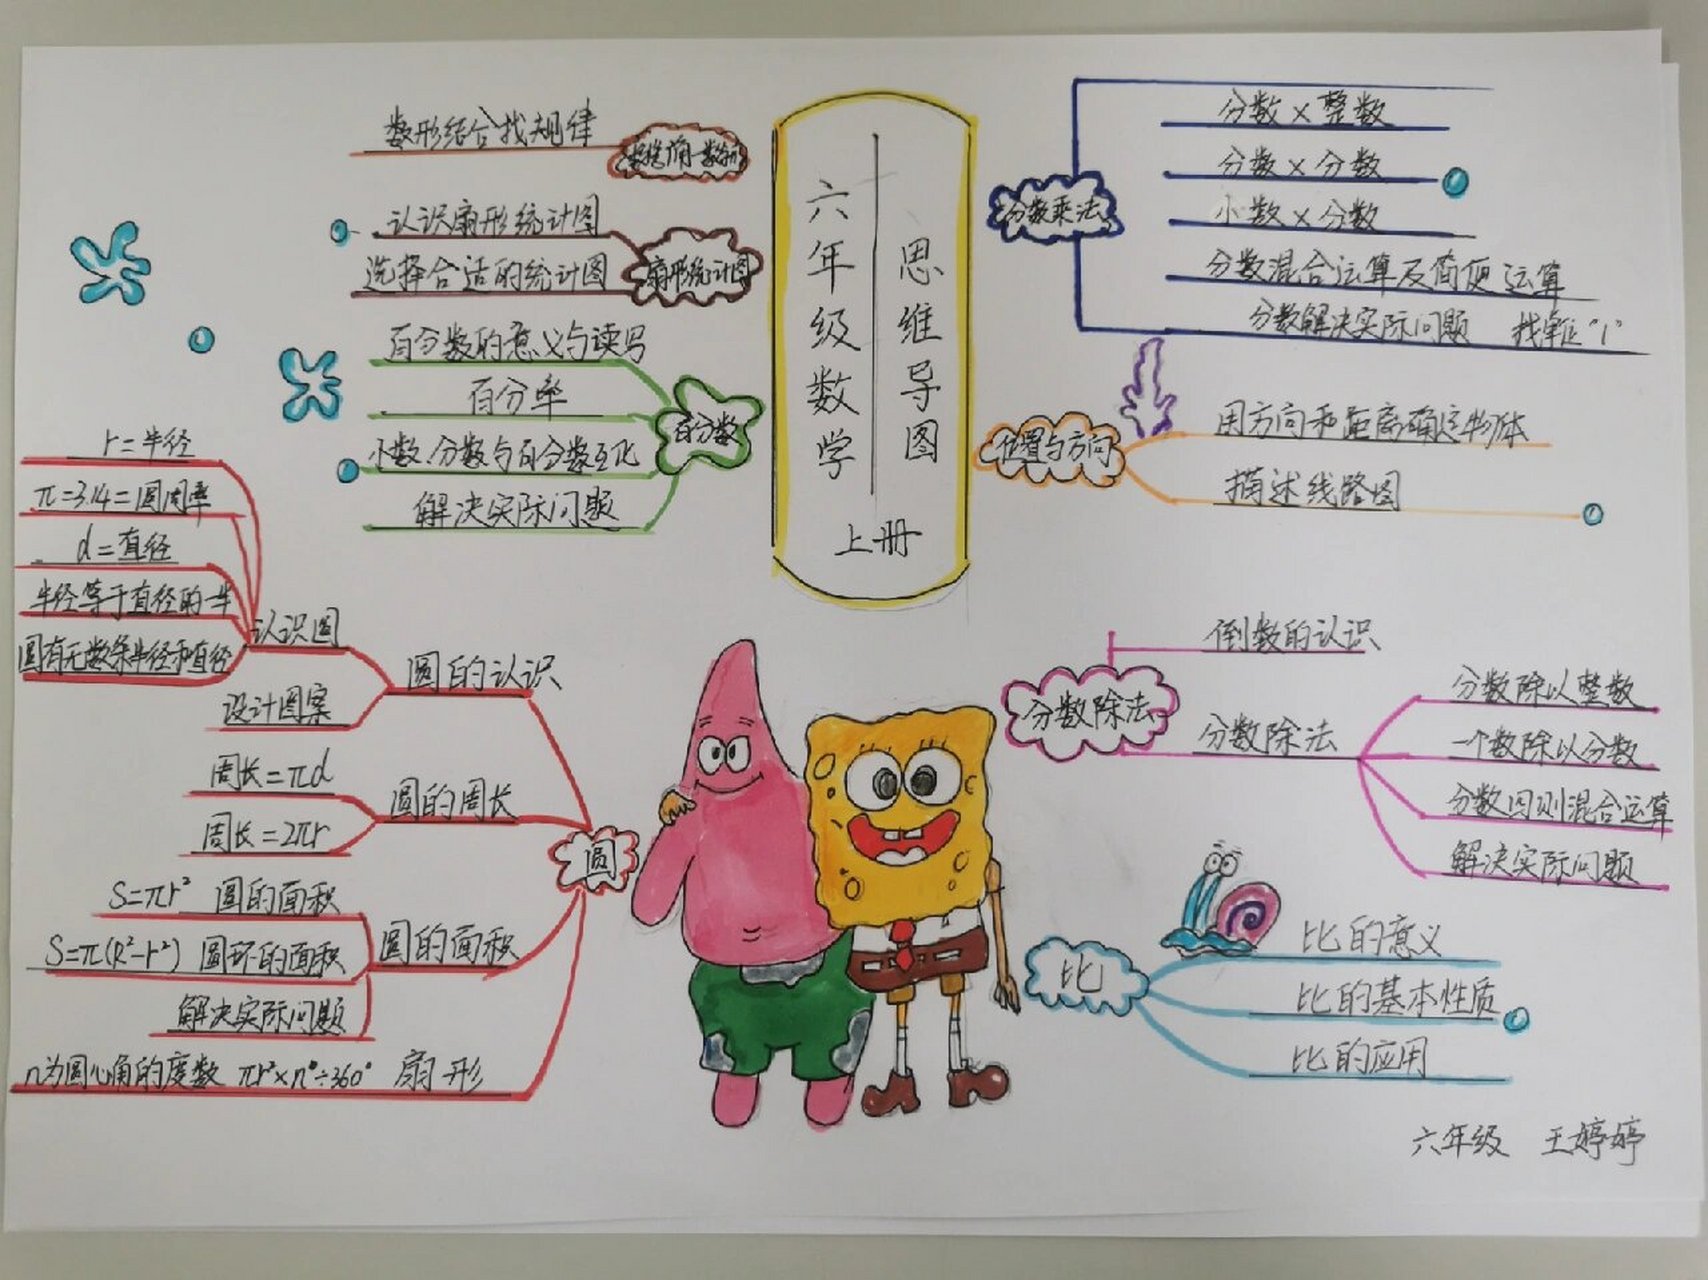 六年级数学
思维导图
上册
分数乘法
分数×整数
分数×分数
小数×分数
分数混合运算及简便运算
分数解决实际问题 找单位“1”
位置与方向
用方向和距离确定物体
描述线路图
分数除法
倒数的认识
分数除法
分数除以整数
一个数除以分数
分数四则混合运算
解决实际问题
比
比的意义
比的基本性质
比的应用
圆
圆的认识
认识圆
r=半径
π=3.14=圆周率
d=直径
半径等于直径的一半
圆有无数条半径和直径
设计图案
圆的周长
周长=πd
周长=2πr
圆的面积
S=πr² 圆的面积
S=π(R²-r²) 圆环的面积
解决实际问题
n为圆心角的度数 πr²×n°÷360° 扇形
百分数
百分数的意义与读写
百分率
小数.分数与百分数互化
解决实际问题
扇形统计图
认识扇形统计图
选择合适的统计图
数形结合找规律
六年级 王婷婷